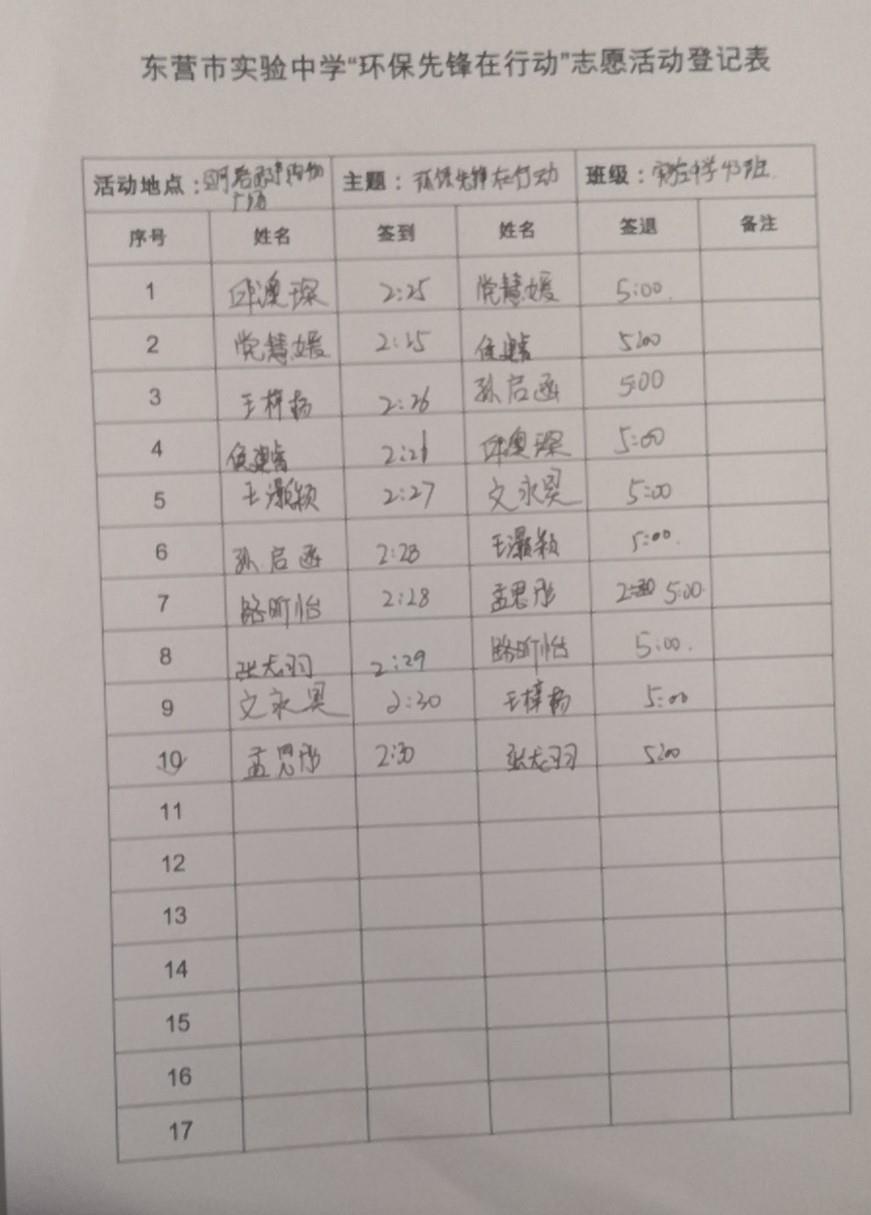 东营市实验中学“环保先锋在行动”志愿活动登记表
活动地点： 购物广场 主题：环保先锋在行动 班级：实验中学43班
序号 姓名 签到 姓名 签退 备注
1 邱澳琛 2:25 党慧媛 5:00
2 党慧媛 2:25 侯建睿 5:00
3 王梓杨 2:26 孙启函 5:00
4 侯建睿 2:26 邱澳琛 5:00
5 王灏颖 2:27 文永昊 5:00
6 孙启函 2:28 王灏颖 5:00
7 路昕怡 2:28 孟思彤 5:00
8 张尤羽 2:29 路昕怡 5:00
9 文永昊 2:30 王梓杨 5:00
10 孟思彤 2:30 张尤羽 5:00
11
12
13
14
15
16
17